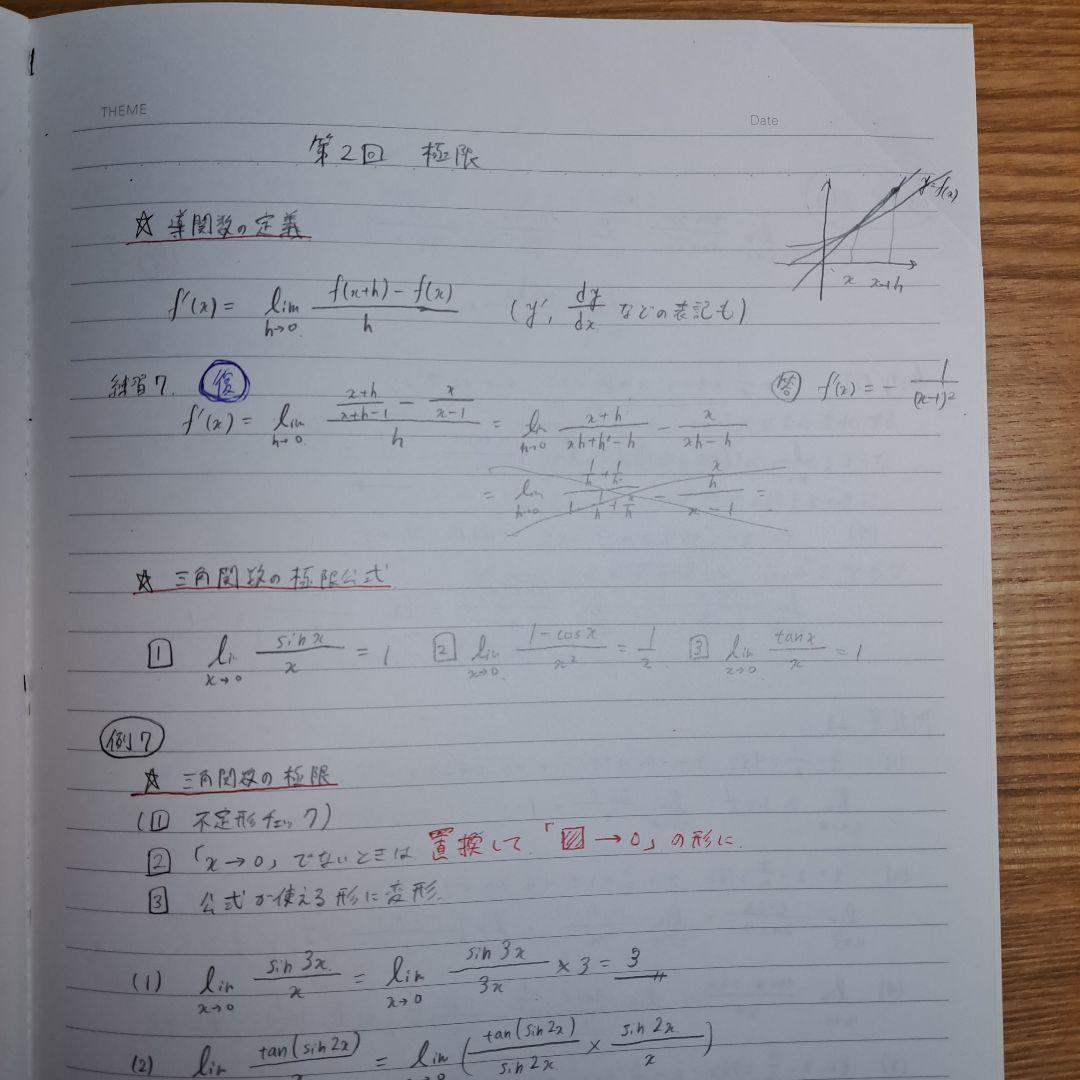 THEME
Date
第2回 極限
☆ 導関数の定義
y=f(x)
x x+h
f'(x) = lim h→0 (f(x+h) − f(x))/h (y', dy/dx などの表記も)
練習7. 復 答 f'(x) = − 1/(x−1)²
f'(x) = lim h→0 ((x+h)/(x+h−1) − x/(x−1))/h = lim h→0 (x+h)/(xh+h²−h) − x/(xh−h)
☆ 三角関数の極限公式
1 lim x→0 sin x/x = 1 2 lim x→0 (1−cos x)/x² = 1/2 3 lim x→0 tan x/x = 1
例7
☆ 三角関数の極限
(1 不定形チェック)
2 「x→0」でないときは 置換して「▨→0」の形に.
3 公式が使える形に変形.
(1) lim x→0 sin 3x/x = lim x→0 sin 3x/3x × 3 = 3
(2) lim tan(sin 2x) = lim (tan(sin 2x)/sin 2x × sin 2x/x)